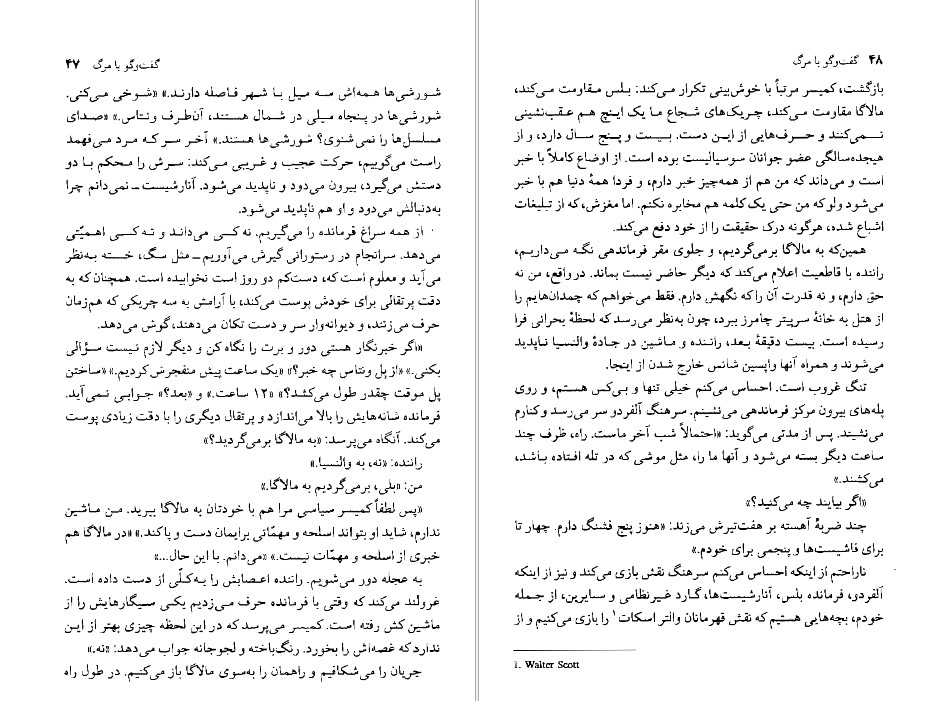 گفت‌وگو با مرگ ۴۷
شورشی‌ها همه‌اش سه میل با شهر فاصله دارند.» «شوخی می‌کنی.
شورشی‌ها در پنجاه میلی در شمال هستند، آن‌طرف ونتاس.» «صدای
مسلسل‌ها را نمی‌شنوی؟ شورشی‌ها هستند.» آخر سر که مرد می‌فهمد
راست می‌گوییم، حرکت عجیب و غریبی می‌کند: سرش را محکم با دو
دستش می‌گیرد، بیرون می‌دود و ناپدید می‌شود. آنارشیست ـ نمی‌دانم چرا
به‌دنبالش می‌دود و او هم ناپدید می‌شود.
از همه سراغ فرمانده را می‌گیریم. نه کسی می‌داند و نه کسی اهمیّتی
می‌دهد. سرانجام در رستورانی گیرش می‌آوریم ـ مثل سگ، خسته به‌نظر
می‌آید و معلوم است که، دست‌کم دو روز است نخوابیده است. همچنان که به
دقت پرتقالی برای خودش پوست می‌کند، با آرامش به سه چریکی که هم‌زمان
حرف می‌زنند، و دیوانه‌وار سر و دست تکان می‌دهند، گوش می‌دهد.
«اگر خبرنگار هستی دور و برت را نگاه کن و دیگر لازم نیست سؤالی
بکنی.» «از پل ونتاس چه خبر؟» «یک ساعت پیش منفجرش کردیم.» «ساختن
پل موقت چقدر طول می‌کشد؟» «۱۲ ساعت.» و «بعد؟» جوابی نمی‌آید.
فرمانده شانه‌هایش را بالا می‌اندازد و پرتقال دیگری را با دقت زیادی پوست
می‌کند. آنگاه می‌پرسد: «به مالاگا برمی‌گردید؟»
راننده: «نه، به والنسیا.»
من: «بلی، برمی‌گردیم به مالاگا.»
«پس لطفاً کمیسر سیاسی مرا هم با خودتان به مالاگا ببرید. من ماشین
ندارم، شاید او بتواند اسلحه و مهمّاتی برایمان دست و پا کند.» «در مالاگا هم
خبری از اسلحه و مهمّات نیست.» «می‌دانم. با این حال...»
به عجله دور می‌شویم. راننده اعصابش را به‌کلّی از دست داده است.
غرولند می‌کند که وقتی با فرمانده حرف می‌زدیم یکی سیگارهایش را از
ماشین کش رفته است. کمیسر می‌پرسد که در این لحظه چیزی بهتر از این
ندارد که غصه‌اش را بخورد. رنگ‌باخته و لجوجانه جواب می‌دهد: «نه.»
جریان را می‌شکافیم و راهمان را به‌سوی مالاگا باز می‌کنیم. در طول راه
۴۸ گفت‌وگو با مرگ
بازگشت، کمیسر مرتباً با خوش‌بینی تکرار می‌کند: بلس مقاومت می‌کند،
مالاگا مقاومت می‌کند، چریک‌های شجاع ما یک اینچ هم عقب‌نشینی
نمی‌کنند و حرف‌هایی از این دست. بیست و پنج سال دارد، و از
هیجده‌سالگی عضو جوانان سوسیالیست بوده است. از اوضاع کاملاً با خبر
است و می‌داند که من هم از همه‌چیز خبر دارم، و فردا همهٔ دنیا هم با خبر
می‌شود ولو که من حتی یک کلمه هم مخابره نکنم. اما مغزش، که از تبلیغات
اشباع شده، هرگونه درک حقیقت را از خود دفع می‌کند.
همین‌که به مالاگا برمی‌گردیم، و جلوی مقر فرماندهی نگه می‌داریم،
راننده با قاطعیت اعلام می‌کند که دیگر حاضر نیست بماند. در واقع، من نه
حق دارم، و نه قدرت آن را که نگهش دارم. فقط می‌خواهم که چمدان‌هایم را
از هتل به خانهٔ سرپیتر چامرز ببرد، چون به‌نظر می‌رسد که لحظهٔ بحرانی فرا
رسیده است. بیست دقیقهٔ بعد، راننده و ماشین در جادهٔ والنسیا ناپدید
می‌شوند و همراه آنها واپسین شانس خارج شدن از اینجا.
تنگ غروب است. احساس می‌کنم خیلی تنها و بی‌کس هستم، و روی
پله‌های بیرون مرکز فرماندهی می‌نشینم. سرهنگ آلفردو سر می‌رسد و کنارم
می‌نشیند. پس از مدتی می‌گوید: «احتمالاً شب آخر ماست. راه، ظرف چند
ساعت دیگر بسته می‌شود و آنها ما را، مثل موشی که در تله افتاده باشد،
می‌کشند.»
«اگر بیایند چه می‌کنید؟»
چند ضربهٔ آهسته بر هفت‌تیرش می‌زند: «هنوز پنج فشنگ دارم. چهار تا
برای فاشیست‌ها و پنجمی برای خودم.»
ناراحتم از اینکه احساس می‌کنم سرهنگ نقش بازی می‌کند و نیز از اینکه
آلفردو، فرمانده بلس، آنارشیست‌ها، گارد غیرنظامی و سایرین، از جمله
خودم، بچه‌هایی هستیم که نقش قهرمانان والتر اسکات ۱ را بازی می‌کنیم و از
1. Walter Scott